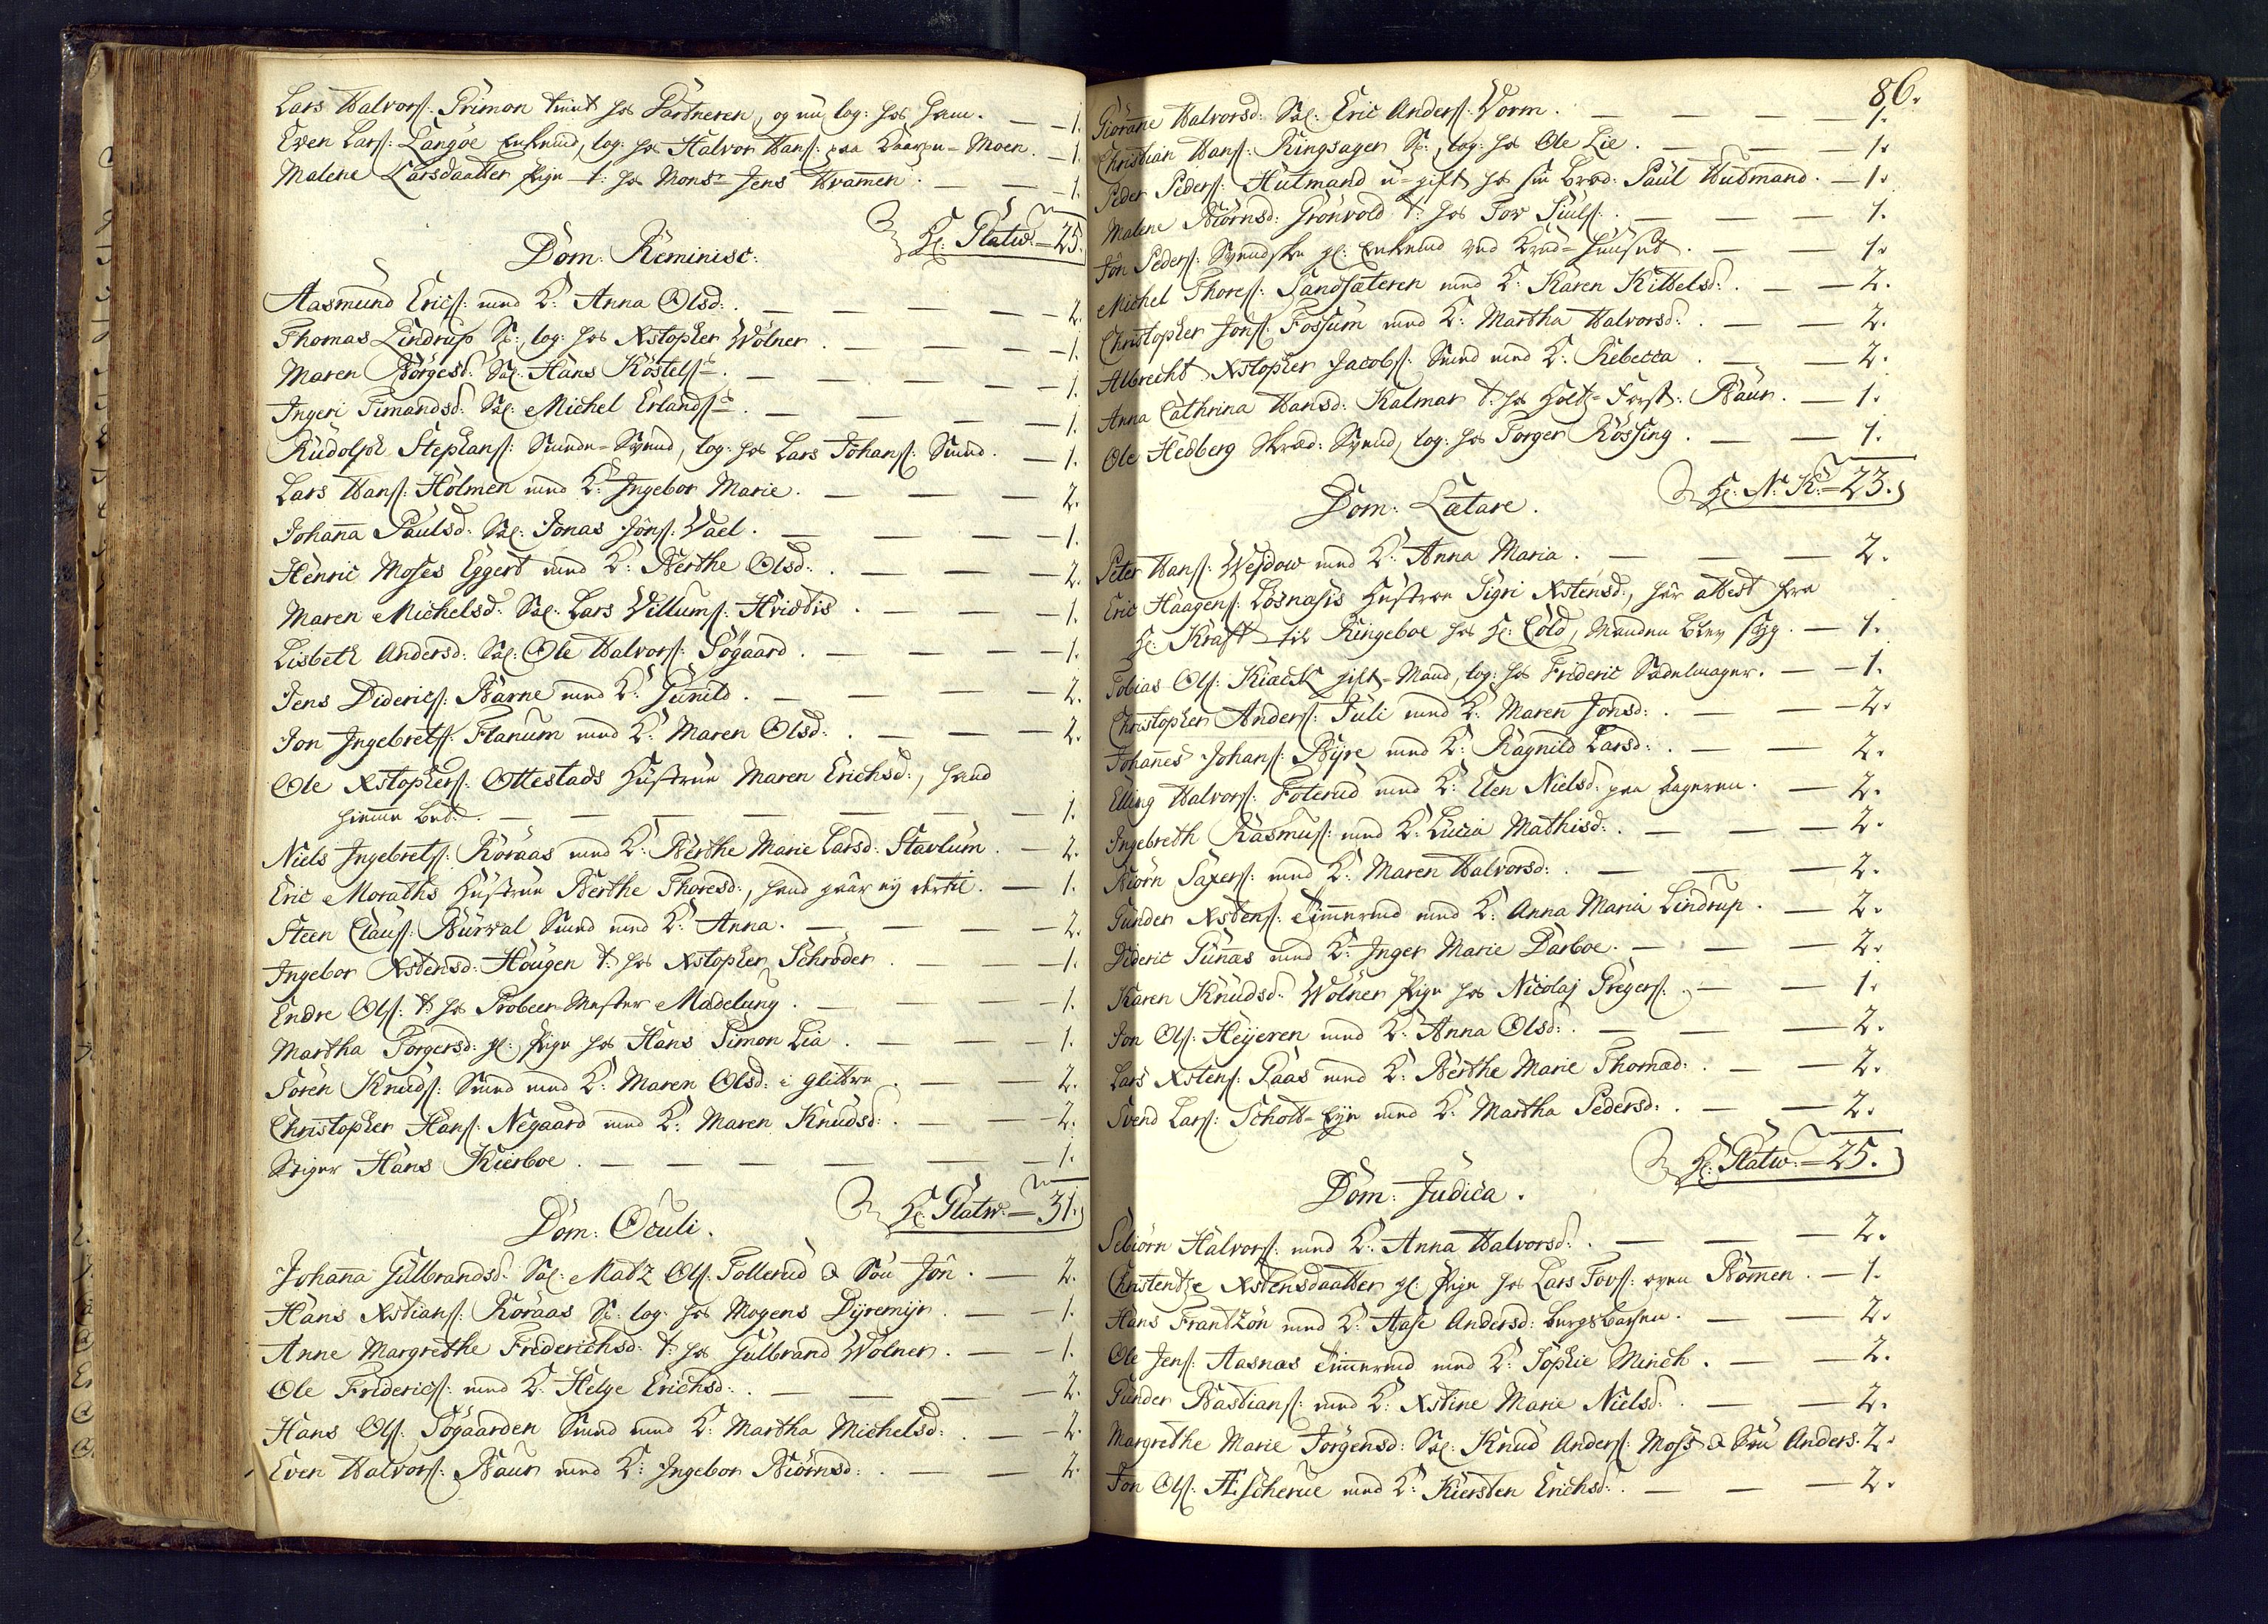 Lars Halvorſ: Primon tient hos Partneren, og nu log: hos ham. — 1.
Even Larſ: Langöe Enkemd, log: hos Halvor Hanſ: paa Moen. — 1.
Malene Larsdaatter Pige t: hos Monsr Jens Kramen. — 1.
H: Platw: = 25.
Dom: Reminisc:
Aasmund Ericſ: med K: Anna Olsd: — 2.
Thomas Lindrup log: hos Xstopher Wölner — 1.
Maren Börgesd: Sal: Hans Köstelſ: — 1.
Ingeri Simandsd: Sal: Michel Erlandſ: — 1.
Rudolph Stephanſ: Smede-Svend, log: hos Lars Johanſ: Smed. — 1.
Lars Hanſ: Holmen med K: Ingebor Marie. — 2.
Johanna Paulsd: Sal: Jonas Jönſ: Vael. — 1.
Henric Moses Eggert med K: Berthe Olsd: — 2.
Maren Michelsd: Sal: Lars Villumſ: Hvidtis — 1.
Lisbeth Andersd: Sal: Ole Halvorſ: Sögaard. — 1.
Jens Didericſ: Barne med K: Gunild. — 2.
Jon Ingebretſ: Flanum med K: Maren Olsd: — 2.
Ole Xstopherſ: Ottestads Hustrue Maren Erichsd:, hand
hiemme — 1.
Niels Ingebretſ: Roraas med K: Berthe Marie Larsd: Stavlum. — 2.
Eric Moraths Hustrue Berthe Thoresd:, hand gaar ey dertil. — 1.
Steen Clauſ: Burval Smed med K: Anna. — 2.
Ingebor Xstensd: Hougen t: hos Xstopher Schröder — 1.
Endre Olſ: t: hos Probeer-Mester Madelung. — 1.
Martha Torgersd: gl: Pige hos Hans Simon Lia. — 1.
Sören Knudſ: Smed med K: Maren Olsd: i Glittre — 2.
Christopher Hanſ: Negaard med K: Maren Knudsd: — 2.
Stiger Hans Kierboe. — 1.
H: Platw: = 31.
Dom: Oculi.
Johanna Gulbrandsd: Sal: Matz Olſ: Tollerud & Sön Jön. — 2.
Hans Xstianſ: Roraas log: hos Mogens Dyremyr. — 1.
Anne Margrethe Friderichsd: t: hos Gulbrand Wölner. — 1.
Ole Fridericſ: med K: Helge Erichsd: — 2.
Hans Olſ: Sögaarden Smed med K: Martha Michelsd: — 2.
Even Halvorſ: Baur med K: Ingebor Biörnsd: — 2.
86.
Gioranne Halvorsd: Sal: Eric Anderſ: Vorm. — 1.
Christian Hanſ: Ringsager log: hos Ole Lie. — 1.
Peder Pederſ: Hutmand u-gift hos sin Brod: Paul Hutmand. — 1.
Malene Biörnsd: Grönvold t: hos Tov Siulſ: — 1.
Jön Pederſ: Svendske gl: Enkemd ved Huuset. — 1.
Michel Thoreſ: Sandsæteren med K: Karen Kittelsd: — 2.
Christopher Jonſ: Fossum med K: Martha Halvorsd: — 2.
Albrecht Xstopher Jacobſ: Smed med K: Rebecca. — 2.
Anna Cathrina Hansd: Kalmar t: hos Holtz-Forst: Baur. — 1.
Ole Hedberg Skræd: Svend, log: hos Torger Rössing. — 1.
H: N: K: = 23.
Dom: Lætare.
Peter Hanſ: Weydow med K: Anna Maria. — 2.
Eric Haagenſ: Losnasis Hustroe Sigri Xstensd:, har attest fra
H: Kraft til Ringeboe hos H: Cold, Manden blev syg. — 1.
Tobias Olſ: Kiack gift-Mand, log: hos Frideric Sadelmager. — 1.
Christopher Anderſ: Juli med K: Maren Jonsd: — 2.
Johannes Johanſ: Byre med K: Ragnild Larsd: — 2.
Elling Halvorſ: Foterud med K: Elen Nielsd: paa Ageren. — 2.
Ingebreth Rasmuſ: med K: Lucia Mathisd: — 2.
Biörn Saxerſ: med K: Maren Halvorsd: — 2.
Gunder Xstenſ: Timmermd med K: Anna Maria Lindrup. — 2.
Dideric Gunnas med K: Inger Marie Darboe. — 2.
Karen Knudsd: Wölner Pige hos Nicolaj Gregerſ: — 1.
Jon Olſ: Heyeren med K: Anna Olsd: — 2.
Lars Xstenſ: Paas med K: Berthe Marie Thomæd: — 2.
Svend Larſ: Schott-Eye med K: Martha Pedersd: — 2.
H: Platw: = 25.
Dom: Judica.
Sebiörn Halvorſ: med K: Anna Halvorsd: — 2.
Christentze Xstensdaatter gl: Pige hos Lars Tovſ: oven Bommen. — 1.
Hans Frantzön med K: Aase Andersd: Bergsbachen. — 2.
Ole Jenſ: Aasnæs Timmermd med K: Sophie Minch. — 2.
Gunder Bastianſ: med K: Xstine Marie Nielsd: — 2.
Margrethe Marie Jörgensd: Sal: Knud Anderſ: Moss & Sön Anders. 2.
Jon Olſ: Æscherue med K: Kiersten Erichsd: — 2.